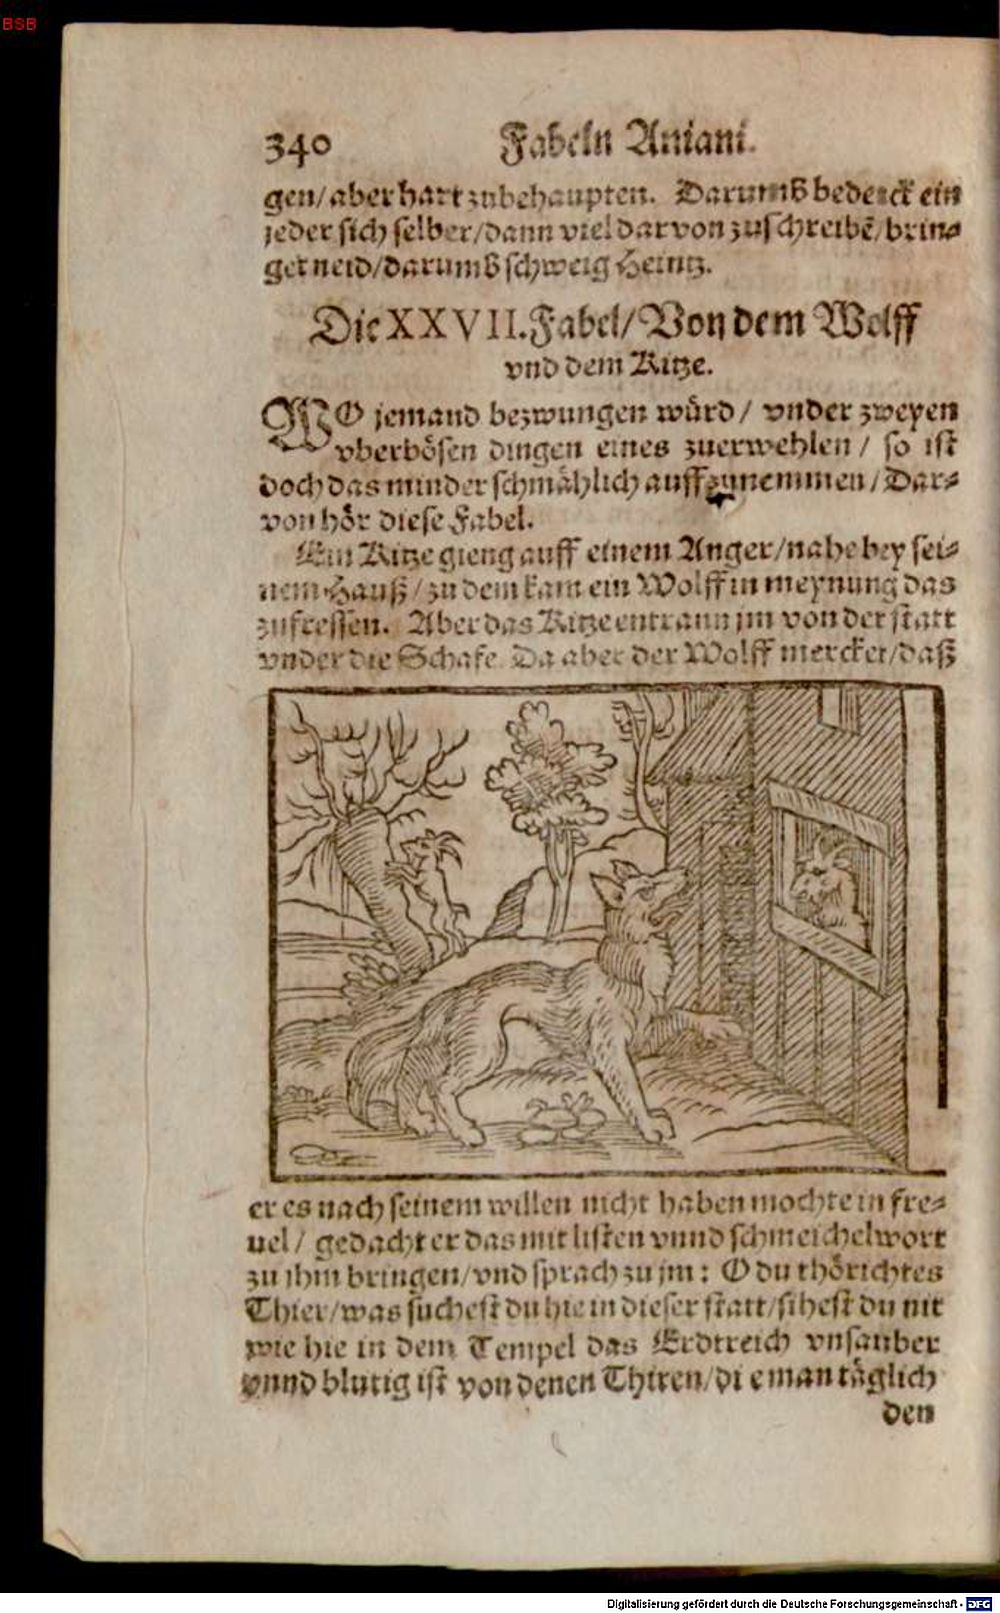 BSB
340 Fabeln Aniani.
gen/ aber hart zubehaupten. Darumb bedeck ein
jeder sich selber/ dann viel darvon zuschreibẽ/ brin-
get neid/ darumb schweig Heintz.
Die XXVII. Fabel/ Von dem Wolff
vnd dem Kitze.
WO jemand bezwungen würd/ vnder zweyen
vberbösen dingen eines zuerwehlen/ so ist
doch das minder schmählich auffzunemmen/ Dar-
von hör diese Fabel.
Ein Kitze gieng auff einem Anger/ nahe bey sei-
nem Hauß/ zu dem kam ein Wolff in meynung das
zufressen. Aber das Kitze entrann jm von der statt
vnder die Schafe. Da aber der Wolff mercket/ daß
er es nach seinem willen nicht haben mochte in fre-
uel/ gedacht er das mit listen vnnd schmeichelwort
zu ihm bringen/ vnd sprach zu jm: O du thörichtes
Thier/ was suchest du hie in dieser statt/ sihest du nit
wie hie in dem Tempel das Erdtreich vnsauber
vnnd blutig ist von denen Thiren/ die man täglich
den
Digitalisierung gefördert durch die Deutsche Forschungsgemeinschaft - DFG